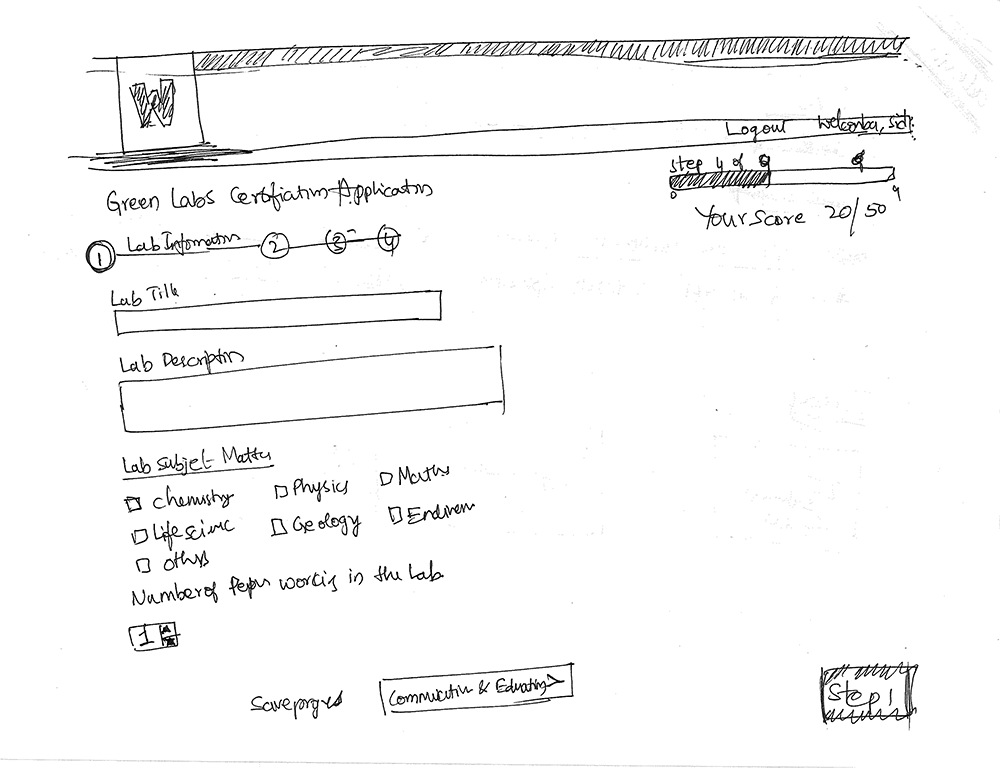 W
Logout Welcome, Sid
Step 4 of 9
0 9
Green Labs Certification Application
Your Score 20/50
1 Lab Information 2 3 4
Lab Title
Lab Description
Lab Subject Matter
Chemistry Physics Maths
Life science Geology
others
Number of People working in the Lab
1
Save progress Communication & Education >
Step 1